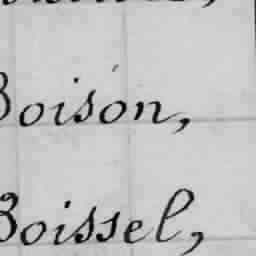 Boison,
Boissel,